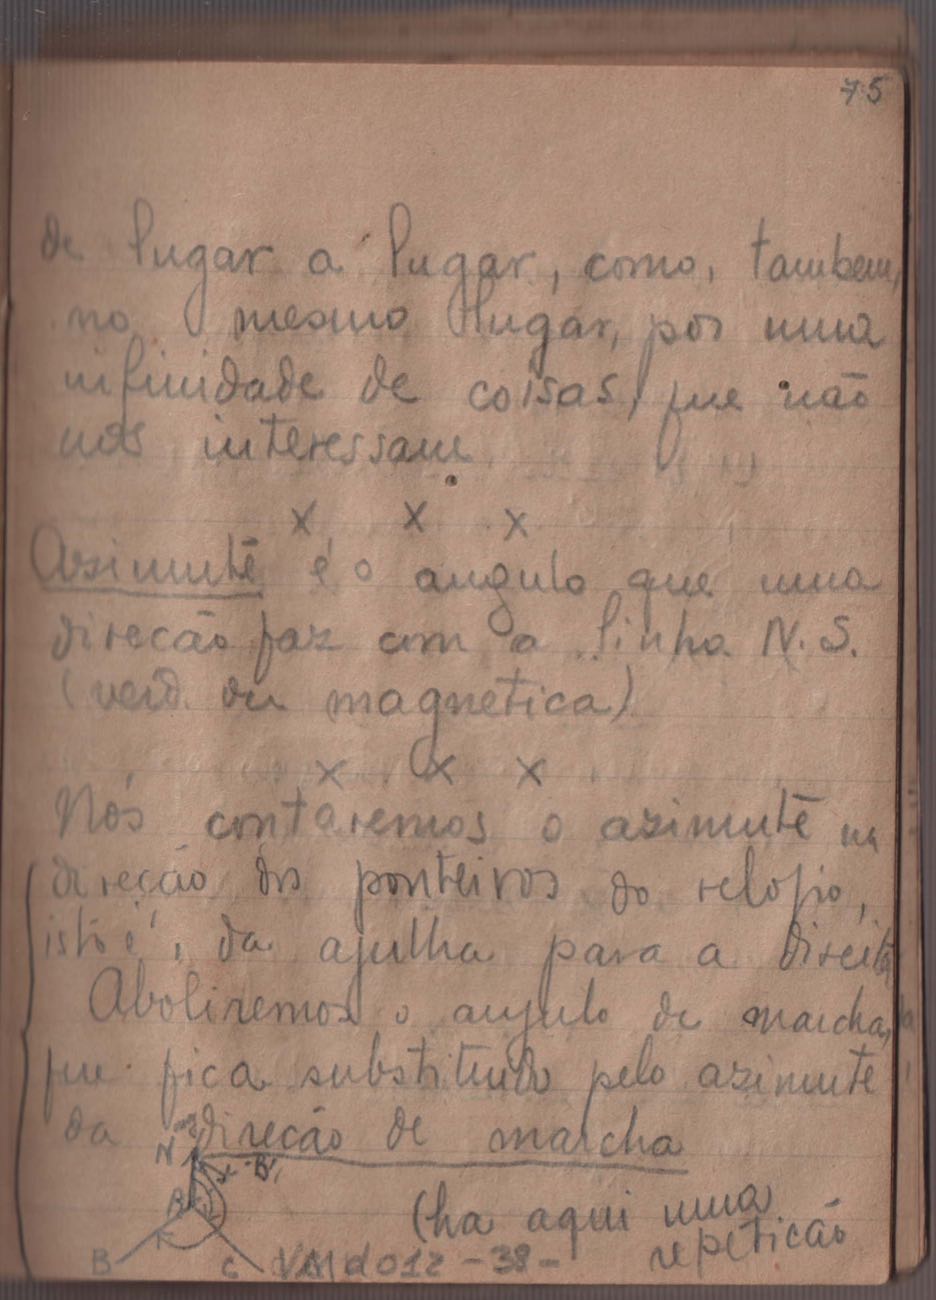 75
de lugar a lugar, como, tambem,
no mesmo lugar, por uma
infinidade de coisas, que não
nos interessam
x x x
Azimute é o angulo que uma
direcão faz com a linha N.S.
(verd. ou magnetica)
x x x
Nós contaremos o azimute na
direção dos ponteiros do relogio,
isto é, da agulha para a direita
Aboliremos o angulo de marcha,
que fica substituido pelo azimute
da direcão de marcha
N mag
B'
A
B C
(ha aqui uma
repeticão
VMd012 -38-